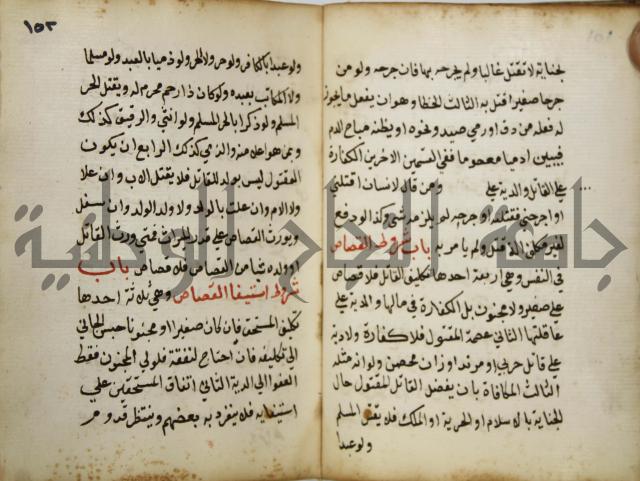 بجناية لا تقتل غالبا ولم يجرحه بها فان جرحه ولو من
جرحا صغيرا قتل به الثالث الخطا وهو ان يفعل ما يجوز
له فعله من دق او رمي صيد ونحوه او يظنه مباح الدم
فيبين ادميا معصوما ففي القسمين الاخرين الكفارة
على القاتل والدية على ومن قال لانسان اقتلني
او اجرحني فقتله او جرحه لم يلزمه شي وكذا لو دفع
لغير مكلف الة قتل ولم يامر به باب شروط القصاص
في النفس وهي اربعة احدها تكليف القاتل فلا قصاص
على صغير ولا مجنون بل الكفارة في مالهما والدية على
عاقلتهما الثاني عصمة المقتول فلا كفارة ولا دية
على قاتل حربي او مرتد او زان محصن ولو انه مثله
الثالث المكافاة بان لا يفضل القاتل المقتول حال
الجناية بالاسلام او الحرية او الملك فلا يقتل المسلم
ولو عبدا
١٥٢
ولو عبدا بالكافر ولو حر ولا الحر ولو ذميا بالعبد ولو مسلما
ولا المكاتب بعبده ولو كان ذا رحم محرم له ويقتل الحر
المسلم ولو ذكرا بالحر المسلم ولو انثى والرقيق كذلك
وبمن هو اعلا منه والذمي كذلك الرابع ان يكون
المقتول ليس بولد للقاتل فلا يقتل الاب وان علا
ولا الام وان علت بالولد ولا ولد الولد وان سفل
ويورث القصاص على قدر الميراث فمتى ورث القاتل
او ولده شيا من القصاص فلا قصاص باب
شروط استيفا القصاص وهي ثلاثة احدها
تكليف المستحق فان كان صغيرا او مجنونا حبس الجاني
الى تكليفه فان احتاج لنفقة فلولي المجنون فقط
العفو الى الدية الثاني اتفاق المستحقين على
استيفايه فلا ينفرد به بعضهم وينتظر قدوم
جامعة النجاح الوطنية